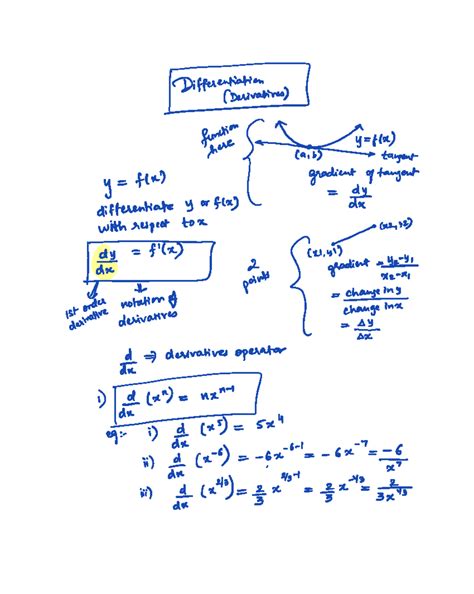 Differentiation
(Derivatives)
function
here
y = f(x)
(a, b)
tangent
gradient of tangent
= dy/dx
y = f(x)
differentiate y or f(x)
with respect to x
dy/dx = f'(x)
1st order
derivative
notation of
derivatives
2
points
(x1, y1)
(x2, y2)
gradient = y2-y1/x2-x1
= change in y/change in x
= Δy/Δx
d/dx ⇒ derivatives operator
i) d/dx (xⁿ) = nxⁿ⁻¹
eg:- i) d/dx (x⁵) = 5x⁴
ii) d/dx (x⁻⁶) = -6x⁻⁶⁻¹ = -6x⁻⁷ = -6/x⁷
iii) d/dx (x^2/3) = 2/3 x^2/3-1 = 2/3 x^-1/3 = 2/3x^1/3